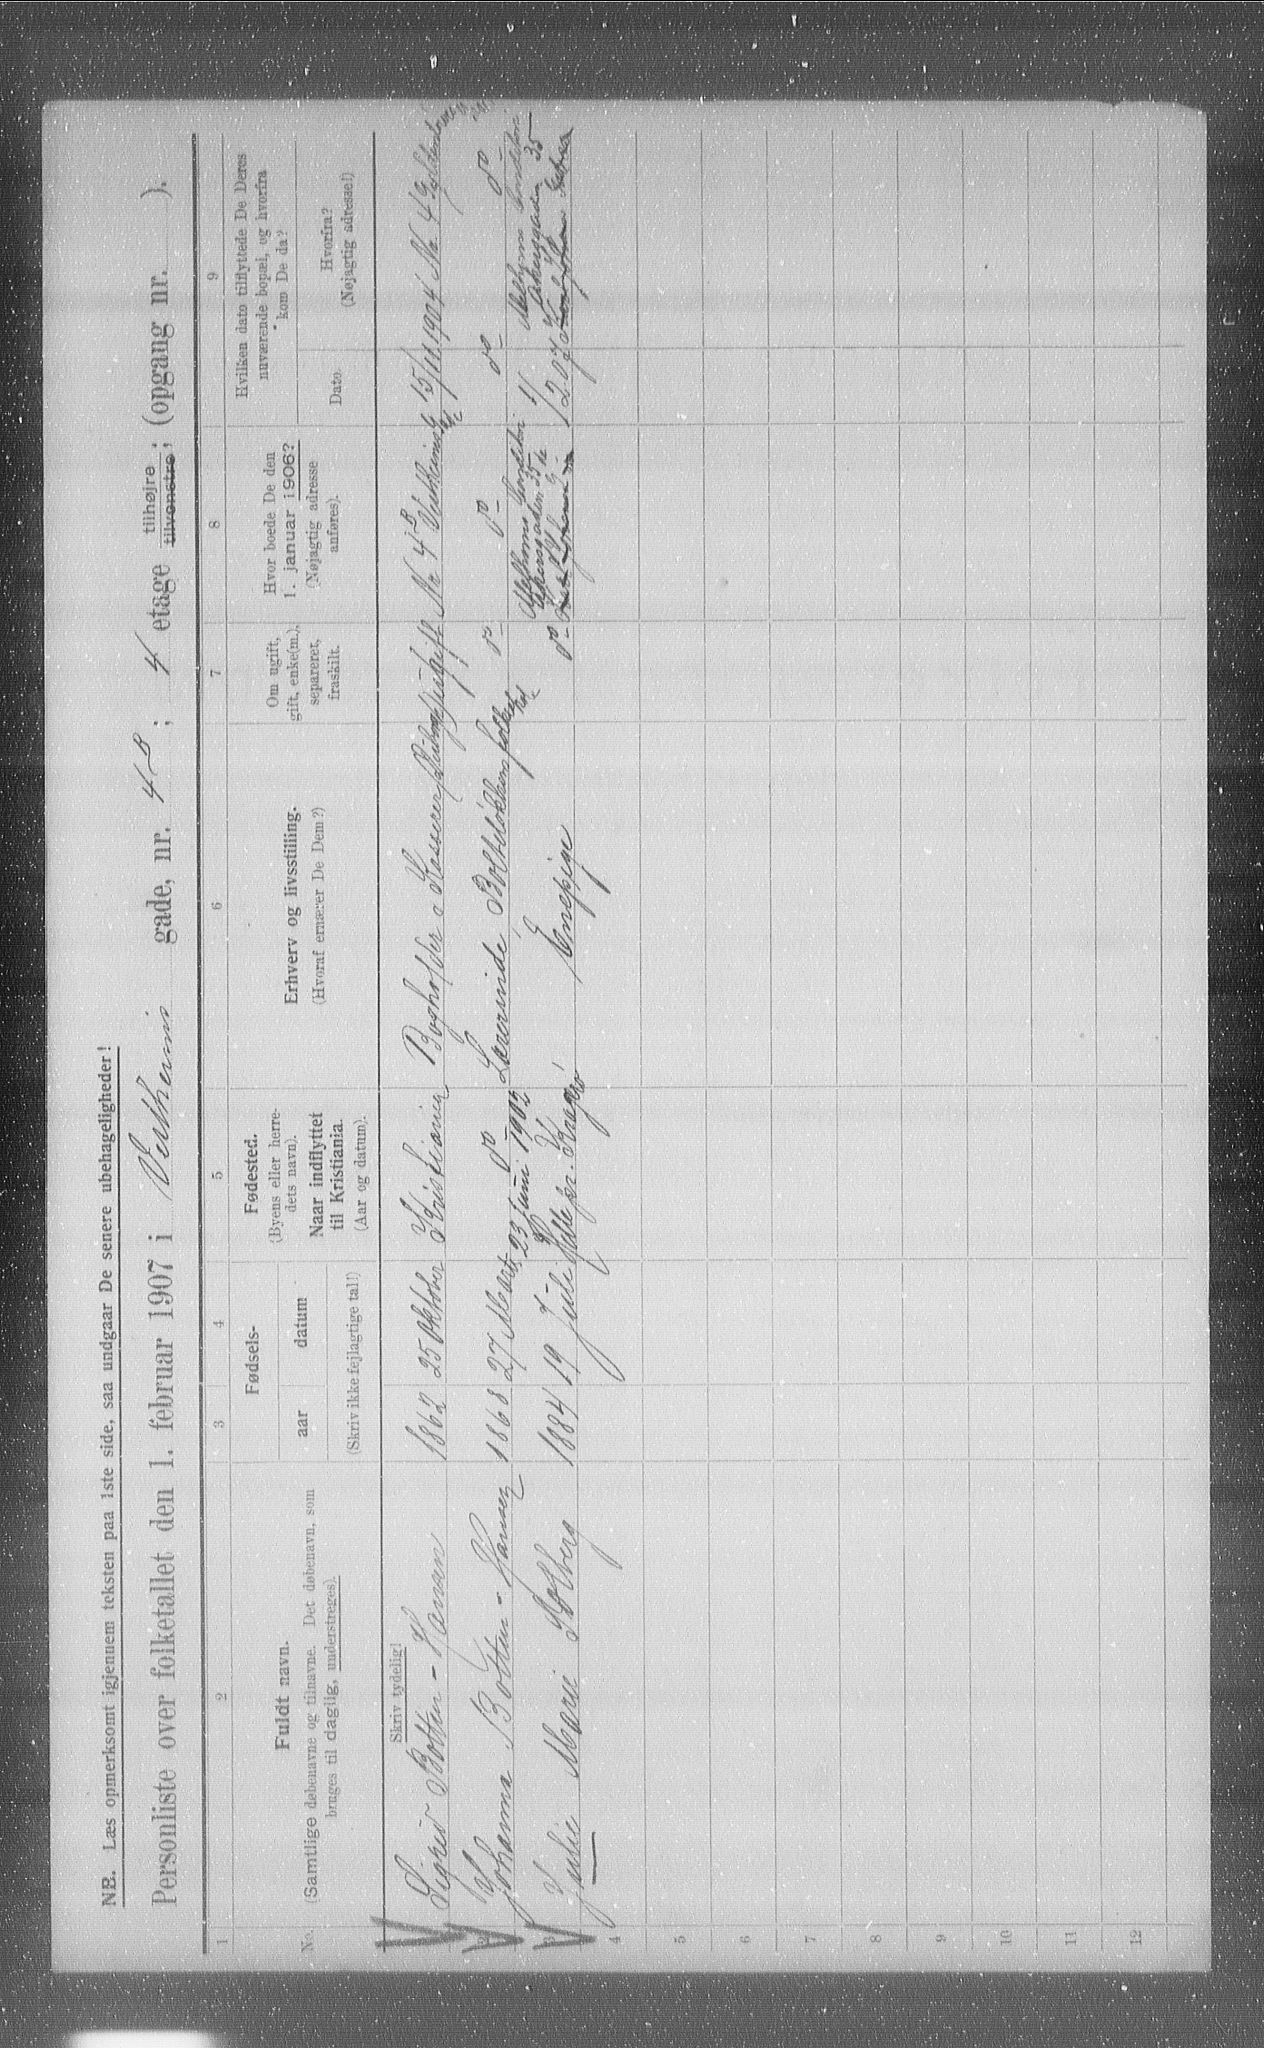 NB. Læs opmerksomt igjennem teksten paa 1ste side, saa undgaar De senere ubehageligheder!
Personliste over folketallet den 1. februar 1907 i Vestheims gade, nr. 4B; 4 etage tilhøjre tilvenstre; (opgang nr. ).
1 2 3 4 5 6 7 8 9
No.
Fuldt navn.
(Samtlige døbenavne og tilnavne. Det døbenavn, som
bruges til daglig, understreges).
Fødsels-
aar datum
(Skriv ikke fejlagtige tal!)
Fødested.
(Byens eller herre-
dets navn).
Naar indflyttet
til Kristiania.
(Aar og datum).
Erhverv og livsstilling.
(Hvoraf ernærer De Dem?)
Om ugift,
gift, enke(m.),
separeret,
fraskilt.
Hvor boede De den
1. januar 1906?
(Nøjagtig adresse
anføres).
Hvilken dato tilflyttede De Deres
nuværende bopæl, og hvorfra
kom De da?
Dato.
Hvorfra?
(Nøjagtig adresse!)
Skriv tydelig!
1 Sigrid Botten-Hansen 1862 25 Oktober Kristiania Bogholder o Kasserer ugift No 4B Vestheimsg 15/11 1904 No 4
2 Johanna Botten-Hansen 1868 27 Marts do Lærerinde do do do do
23 Juni 1902
3 Julie Marie Solberg 1884 19 Juli pr. Kragerø Enepige do Akersgaden 35 1/2 07 Akersgaden 35
4
5
6
7
8
9
10
11
12